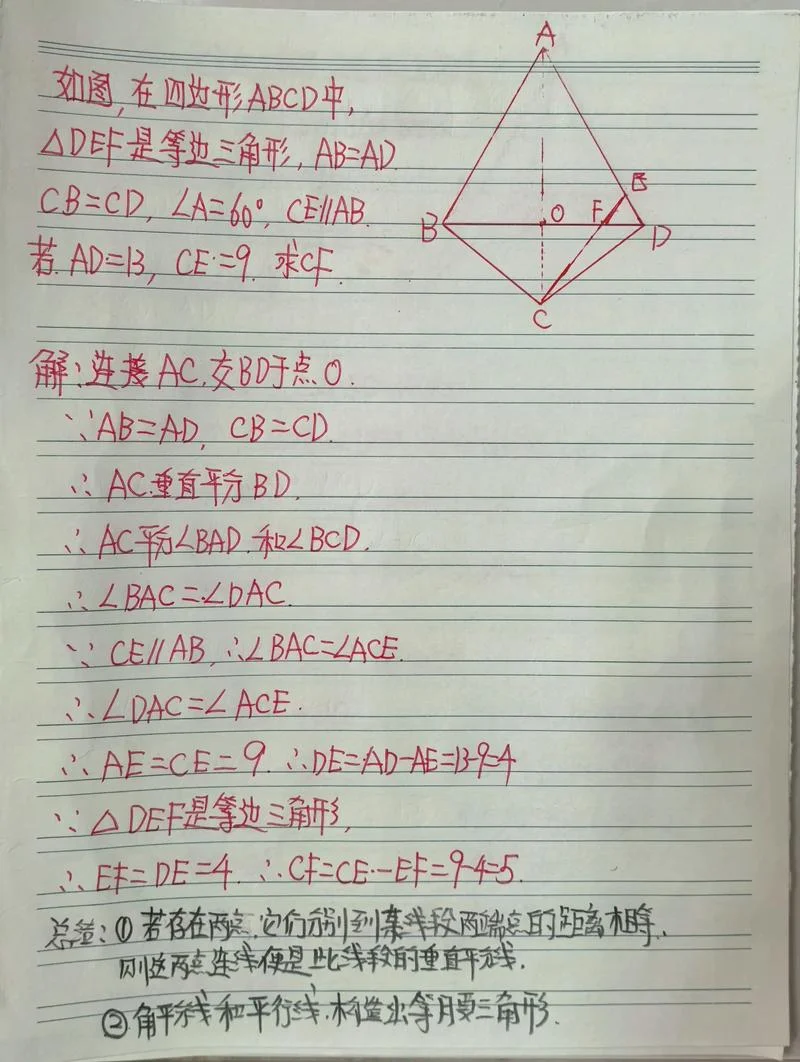 如图,在四边形ABCD中,
△DEF是等边三角形, AB=AD
CB=CD, ∠A=60°, CE∥AB.
若.AD=13, CE=9. 求CF.
A
B
O
F
E
D
C
解:连接AC,交BD于点O.
∵AB=AD, CB=CD.
∴AC垂直平分BD.
∴AC平分∠BAD.和∠BCD.
∴∠BAC=∠DAC.
∵CE∥AB,∴∠BAC=∠ACE.
∴∠DAC=∠ACE.
∴AE=CE=9.∴DE=AD-AE=13-9=4
∵△DEF是等边三角形,
∴EF=DE=4.∴CF=CE-EF=9-4=5.
总结:①若存在两点,它们分别到某线段两端点的距离相等,
则这两点连线便是此线段的垂直平分线.
②角平分线和平行线,构造出等腰三角形.